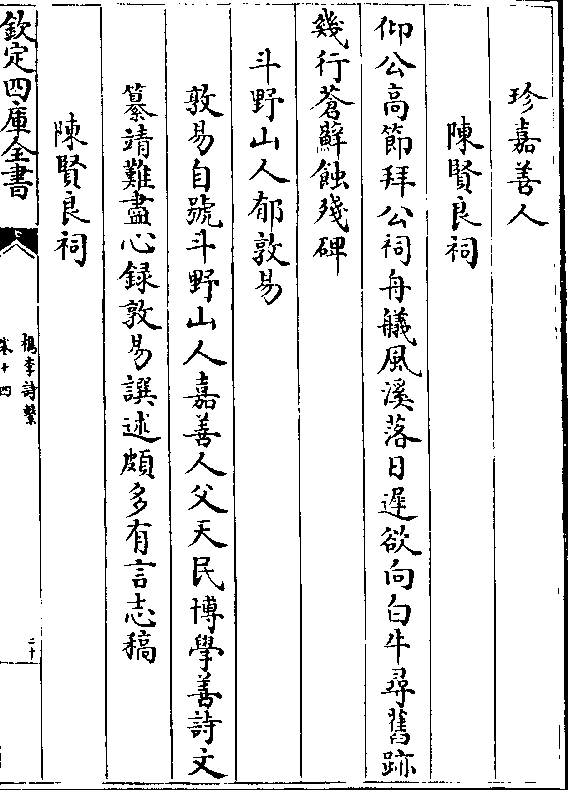 珍嘉善人
陳賢良祠
仰公高節拜公祠舟艤風溪落日遲欲向白牛尋舊跡
幾行蒼蘚蝕殘碑
斗野山人郁敦易
敦易自號斗野山人嘉善人父天民博學善詩文
纂靖難盡心録敦易譔述頗多有言志稿
陳賢良祠
欽定四庫全書
檇李詩繫
卷十四
二十